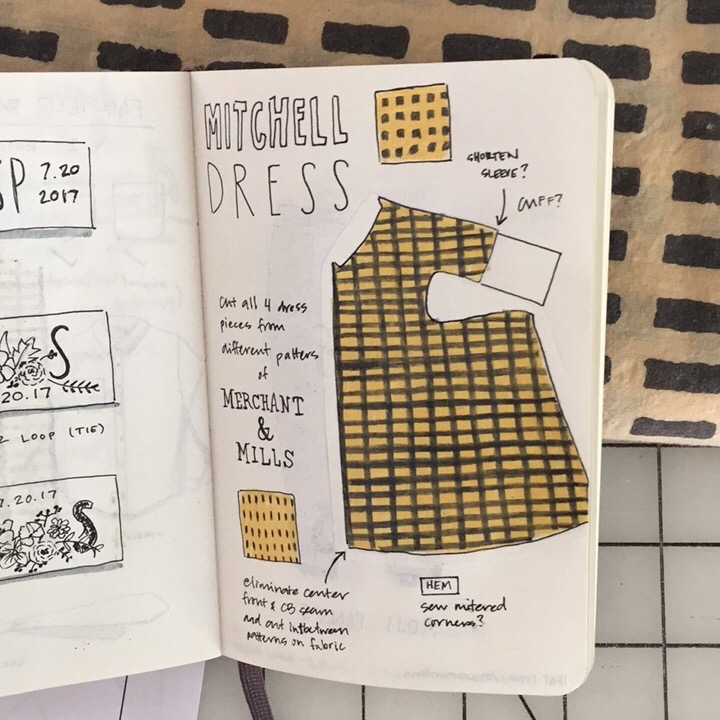 SP
7.20
2017
S
20.17
LOOP (TIE)
7.20.17
S
MITCHELL
DRESS
SHORTEN
SLEEVE?
CUFF?
cut all 4 dress
pieces from
different patters
of
MERCHANT
&
MILLS
eliminate center
front & CB seam
and cut inbetween
patterns on fabric
HEM
sew mitered
corners?